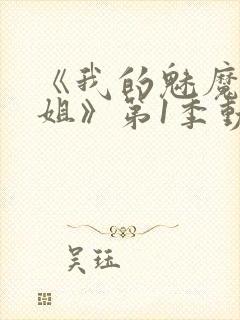 《我的魅魔
姐》第1季動
吴珏